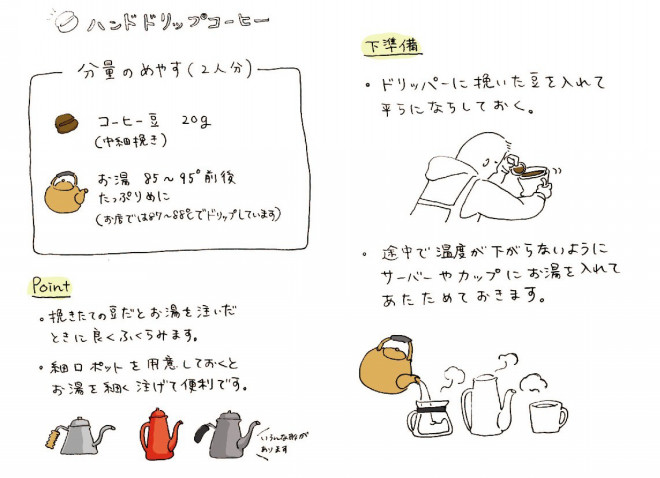 ハンドドリップコーヒー
分量のめやす(2人分)
コーヒー豆 20g
(中細挽き)
お湯 85〜95°前後
たっぷりめに
(お店では87〜88℃でドリップしています)
Point
・挽きたての豆だとお湯を注いだ
ときに良くふくらみます。
・細口ポットを用意しておくと
お湯を細く注げて便利です。
いろんな形が
あります
下準備
・ドリッパーに挽いた豆を入れて
平らにならしておく。
・途中で温度が下がらないように
サーバーやカップにお湯を入れて
あたためておきます。